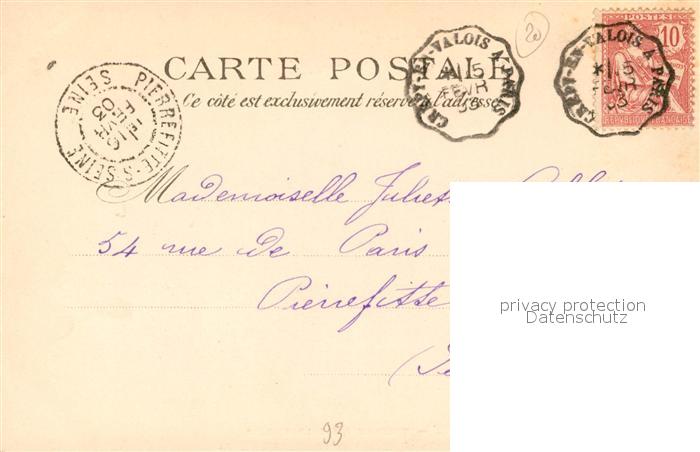 20
POSTES
10
REPVBLIQVE FRANÇAISE
CRÉPY-EN-VALOIS A PARIS
15
FEVR
03
CRÉPY-EN-VALOIS A PARIS
15
FEVR
03
CARTE POSTALE
Ce côté est exclusivement réservé à l'adresse
PIERREFITTE-S-SEINE
SEINE
15
FEVR
03
Mademoiselle
54 rue de Paris
Pierrefitte
privacy protection
Datenschutz
93